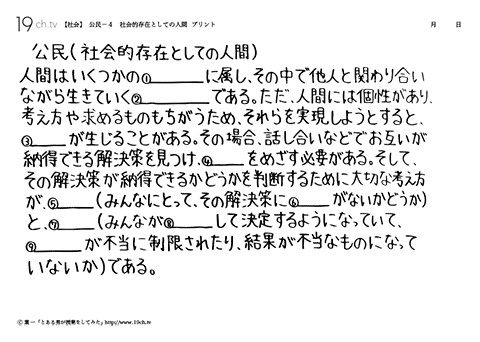 19 ch.tv 【社会】 公民－4 社会的存在としての人間 プリント 月 日
公民(社会的存在としての人間)
人間はいくつかの①______に属し、その中で他人と関わり合い
ながら生きていく②______である。ただ、人間には個性があり、
考え方や求めるものもちがうため、それらを実現しようとすると、
③____が生じることがある。その場合、話し合いなどでお互いが
納得できる解決策を見つけ、④____をめざす必要がある。そして、
その解決策が納得できるかどうかを判断するために大切な考え方
が、⑤____(みんなにとって、その解決策に⑥____がないかどうか)
と、⑦____(みんなが⑧____して決定するようになっていて、
⑨____が不当に制限されたり、結果が不当なものになって
いないか)である。
Ⓒ 葉一「とある男が授業をしてみた」http://www.19ch.tv